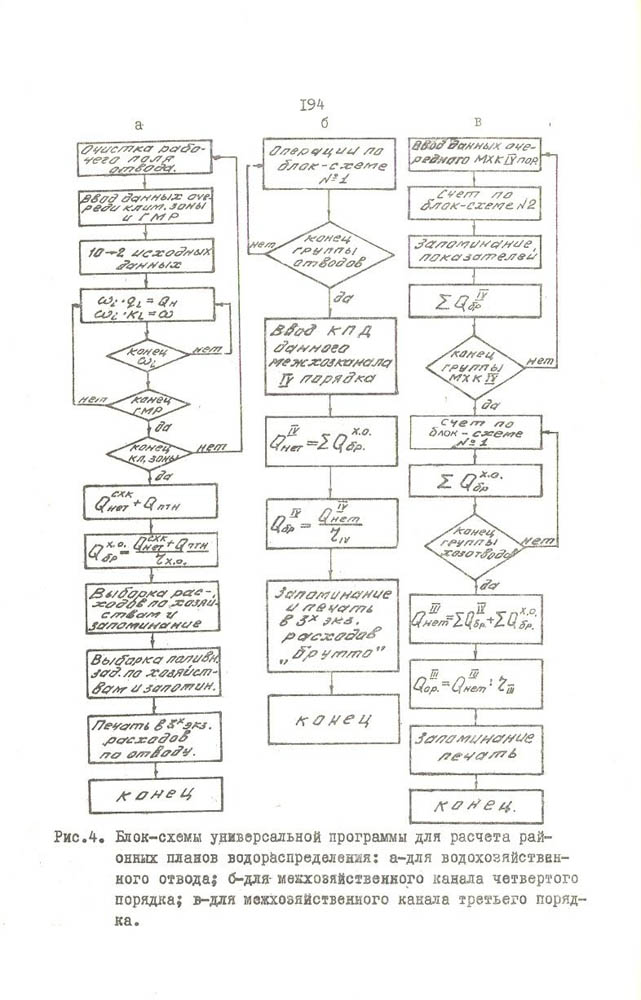 194
а
Очистка рабо-
чего поля
отвода.
Ввод данных оче-
реди клим. зоны
и ГМР
10→2 исходных
данных
ωi·qi=Qн
ωi·Ki=ω
конец
ωi
нет
конец
ГМР
нет
да
конец
кл. зоны
нет
да
Qнет^схк + Qптн
Qбр^х.о. = (Qнет^схк + Qптн) / ηх.о.
Выборка рас-
ходов по хозяй-
ствам и
запоминание
Выборка поливн.
зад. по хозяйст-
вам и запомин.
Печать в 3х экз.
расходов
по отводу.
конец
б
Операции по
блок-схеме
№1
нет
конец
группы
отводов
да
Ввод КПД
данного
межхозканала
IV порядка
Qнет^IV = ΣQбр.^х.о.
Qбр^IV = Qнет^IV / ηIV
Запоминание
и печать
в 3х экз.
расходов
„брутто"
конец
в
Ввод данных оче-
редного МХК IV пор.
Счет по
блок-схеме N2
Запоминание,
показателей
ΣQбр^IV
конец
группы
МХК IV
нет
да
Счет по
блок-схеме
№1
ΣQбр^х.о.
конец
группы
хозотводов
нет
да
Qнет^III = ΣQбр^IV + ΣQбр.^х.о.
Qбр.^III = Qнет^III : ηIII
Запоминание
печать
конец.
Рис.4. Блок-схемы универсальной программы для расчета рай-
онных планов водораспределения: а-для водохозяйствен-
ного отвода; б-для межхозяйственного канала четвертого
порядка; в-для межхозяйственного канала третьего поряд-
ка.